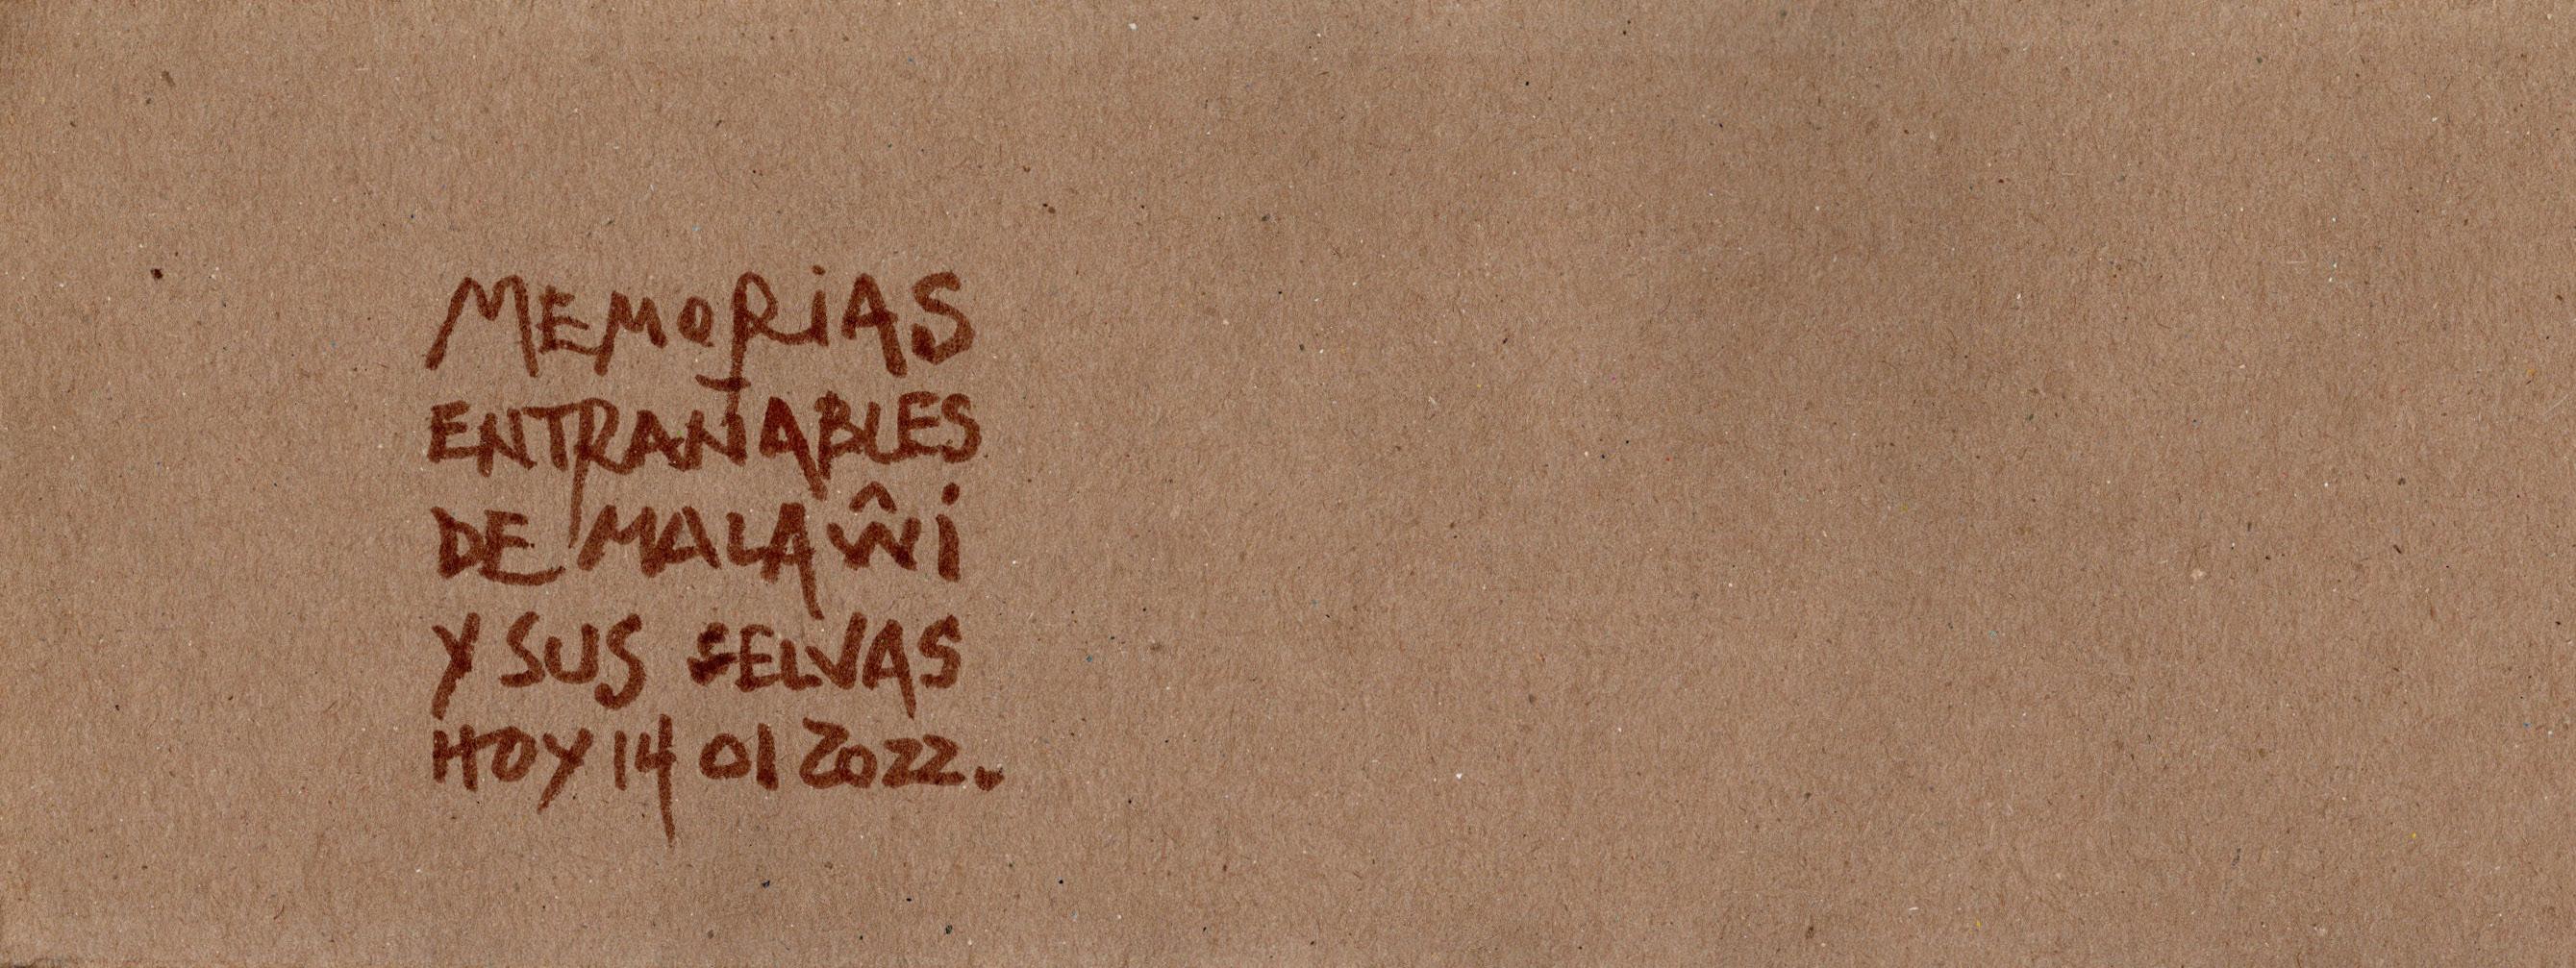 MEMORiAS
ENTRAÑABLES
DE MALAŴi
Y SUS SELVAS
HOY 14 01 2022.